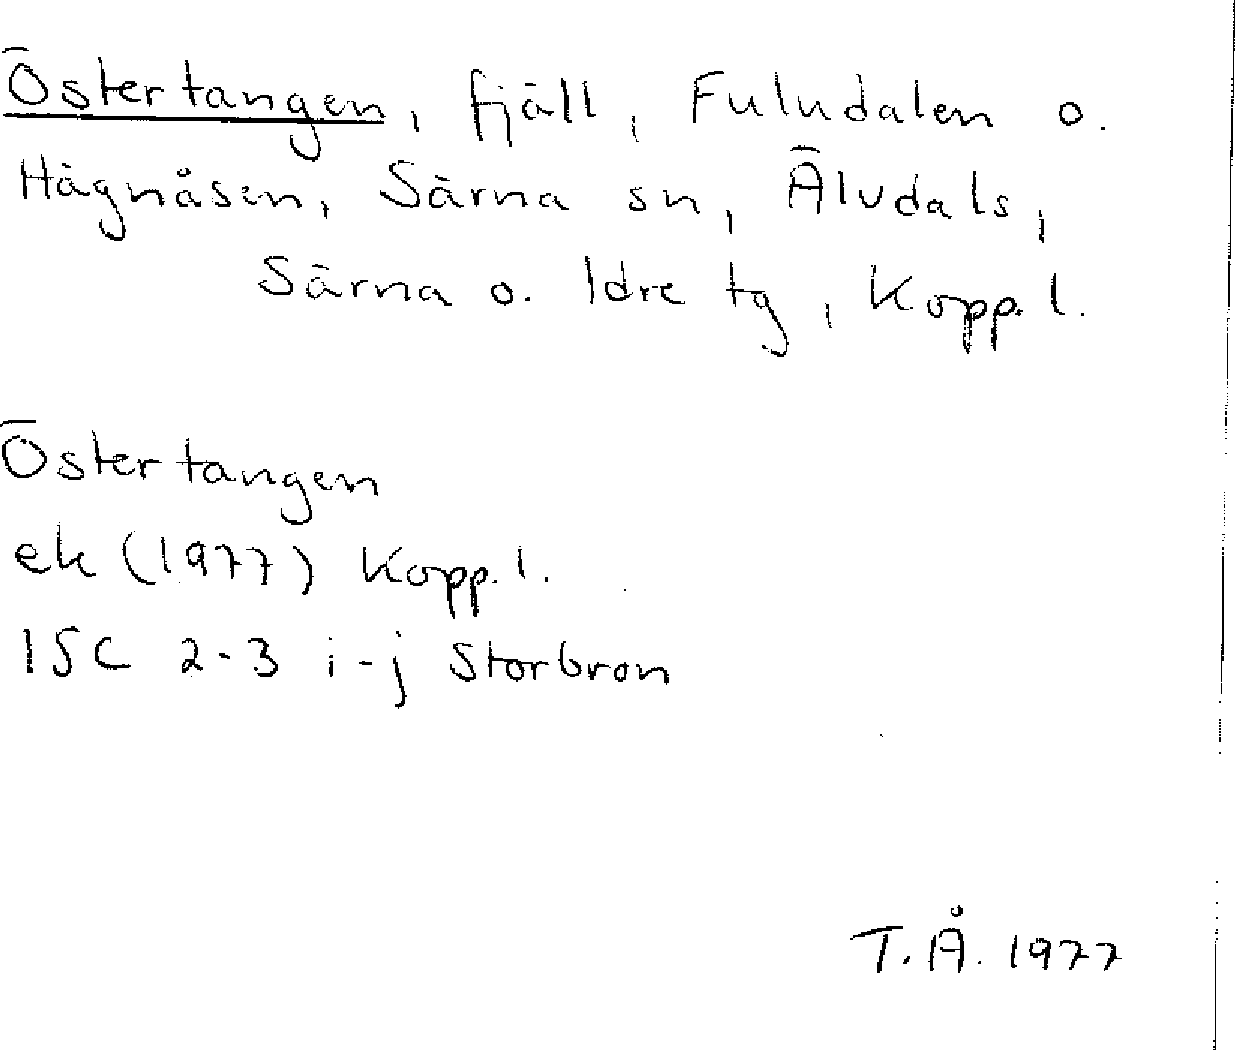 Östertangen, fjäll, Fuludalen o.
Hägnåsen, Särna sn, Älvdals,
Särna o. Idre tg, Kopp. l.
Östertangen
ek (1977) Kopp. l.
15C 2-3 i-j Storbron
T. Å. 1977